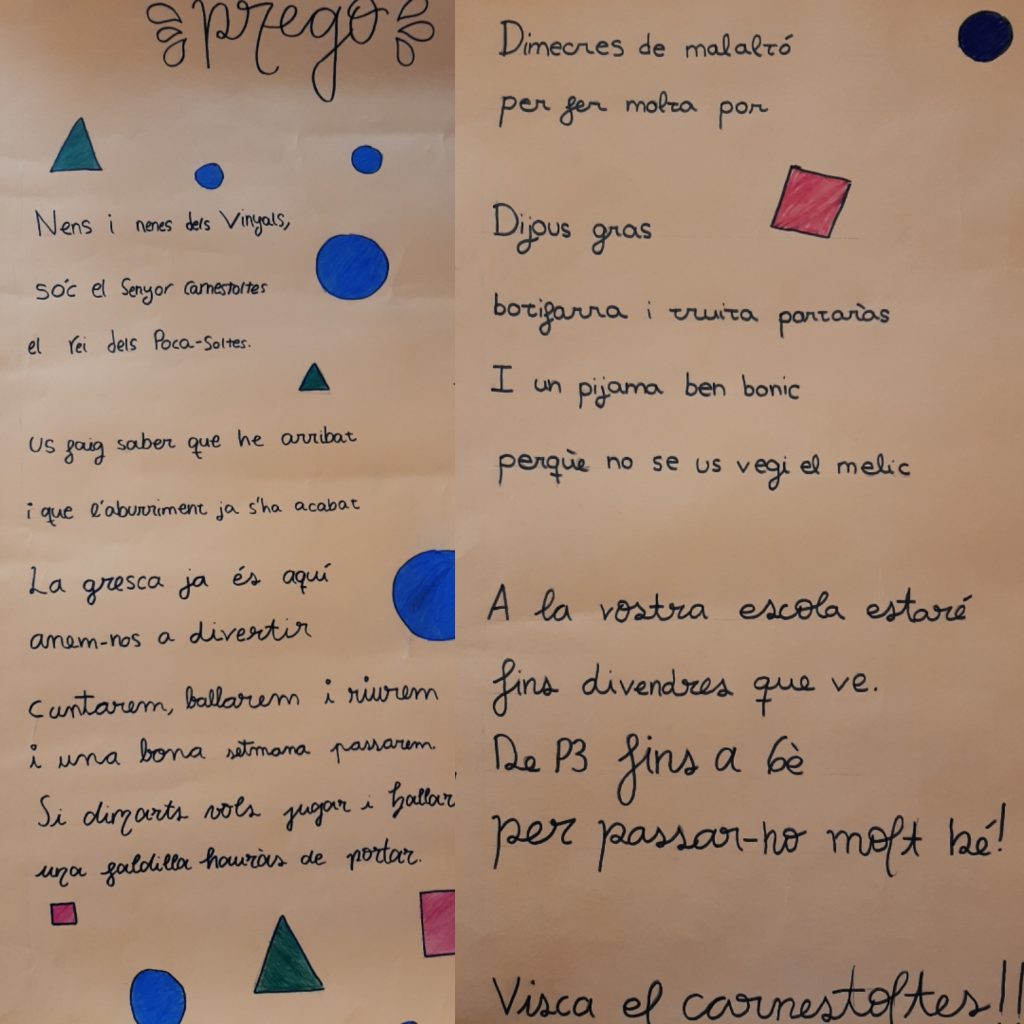 prego
Nens i nenes dels Vinyals,
sóc el Senyor Carnestoltes
el rei dels Poca-Soltes.
us faig saber que he arribat
i que l'aburriment ja s'ha acabat
La gresca ja és aquí
anem-nos a divertir
cantarem, ballarem i riurem
i una bona setmana passarem.
Si dimarts vols jugar i ballar
una faldilla hauràs de portar.
Dimecres de malaltó
per fer molta por
Dijous gras
botifarra i truita portaràs
I un pijama ben bonic
perquè no se us vegi el melic
A la vostra escola estaré
fins divendres que ve.
De P3 fins a 6è
per passar-ho molt bé!
Visca el carnestoltes!!